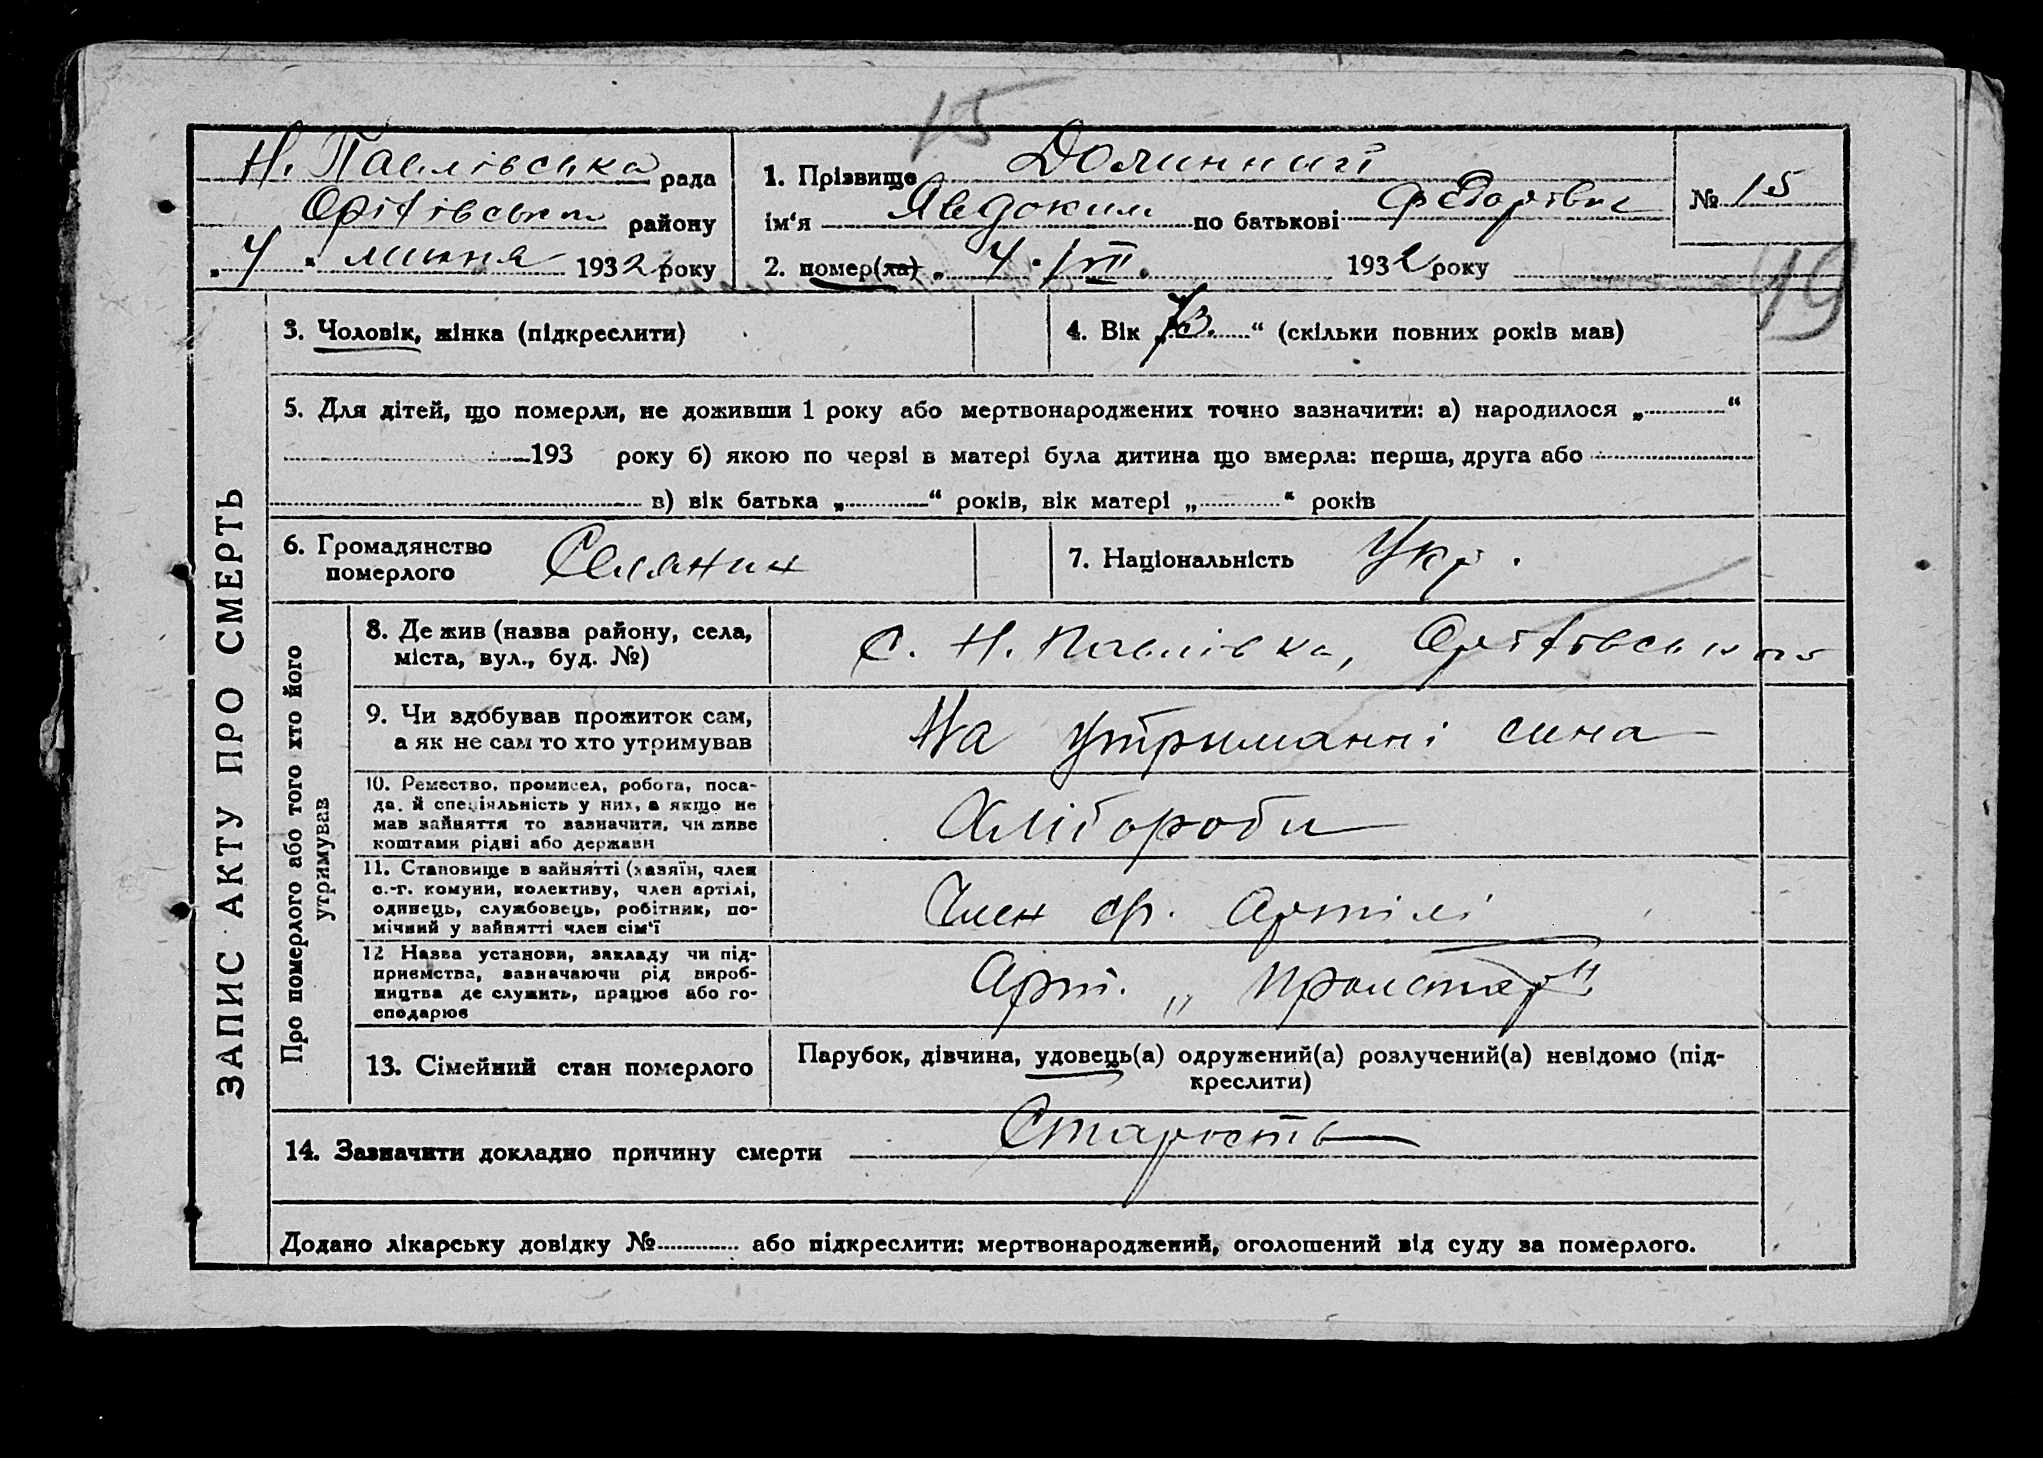 15
Н. Павлівська рада
Оріхівського району
„ 4 “ липня 1932 року
1. Прізвище Долинний
ім‘я Явдоким по батькові Федорович
2. помер(ла) „ 4. VII. 1932 року
№ 15
49
ЗАПИС АКТУ ПРО СМЕРТЬ
3. Чоловік, жінка (підкреслити)
4. Вік „ 73. “ (скільки повних років мав)
5. Для дітей, що померли, не доживши 1 року або мертвонароджених точно зазначити: а) народилося „ “
193 року б) якою по черзі в матері була дитина що вмерла: перша, друга або
в) вік батька „ “ років, вік матері „ “ років
6. Громадянство
померлого
Селянин
7. Національність Укр.
Про померлого або того хто його
утримував
8. Де жив (назва району, села,
міста, вул., буд. №)
С. Н. Павлівка, Оріхівського
9. Чи здобував прожиток сам,
а як не сам то хто утримував
На утриманні сина
10. Ремество, промисел, робота, поса-
да, й спеціяльність у них, а якщо не
мав зайняття то зазначити, чи живе
коштами рідні або держави
Хлібороби
11. Становище в зайнятті (хазяїн, член
с.-г. комуни, колективу, член артілі,
одинець, службовець, робітник, по-
мічний у зайнятті член сім‘ї
Член ср. Артілі
12 Назва установи, закладу чи під-
приємства, зазначаючи рід вироб-
ництва де служить, працює або го-
сподарює
Арт. „Пролетар“
13. Сімейний стан померлого
Парубок, дівчина, удовець(а) одружений(а) розлучений(а) невідомо (під-
креслити)
14. Зазначити докладно причину смерти
Старость
Додано лікарську довідку № або підкреслити: мертвонароджений, оголошений від суду за померлого.